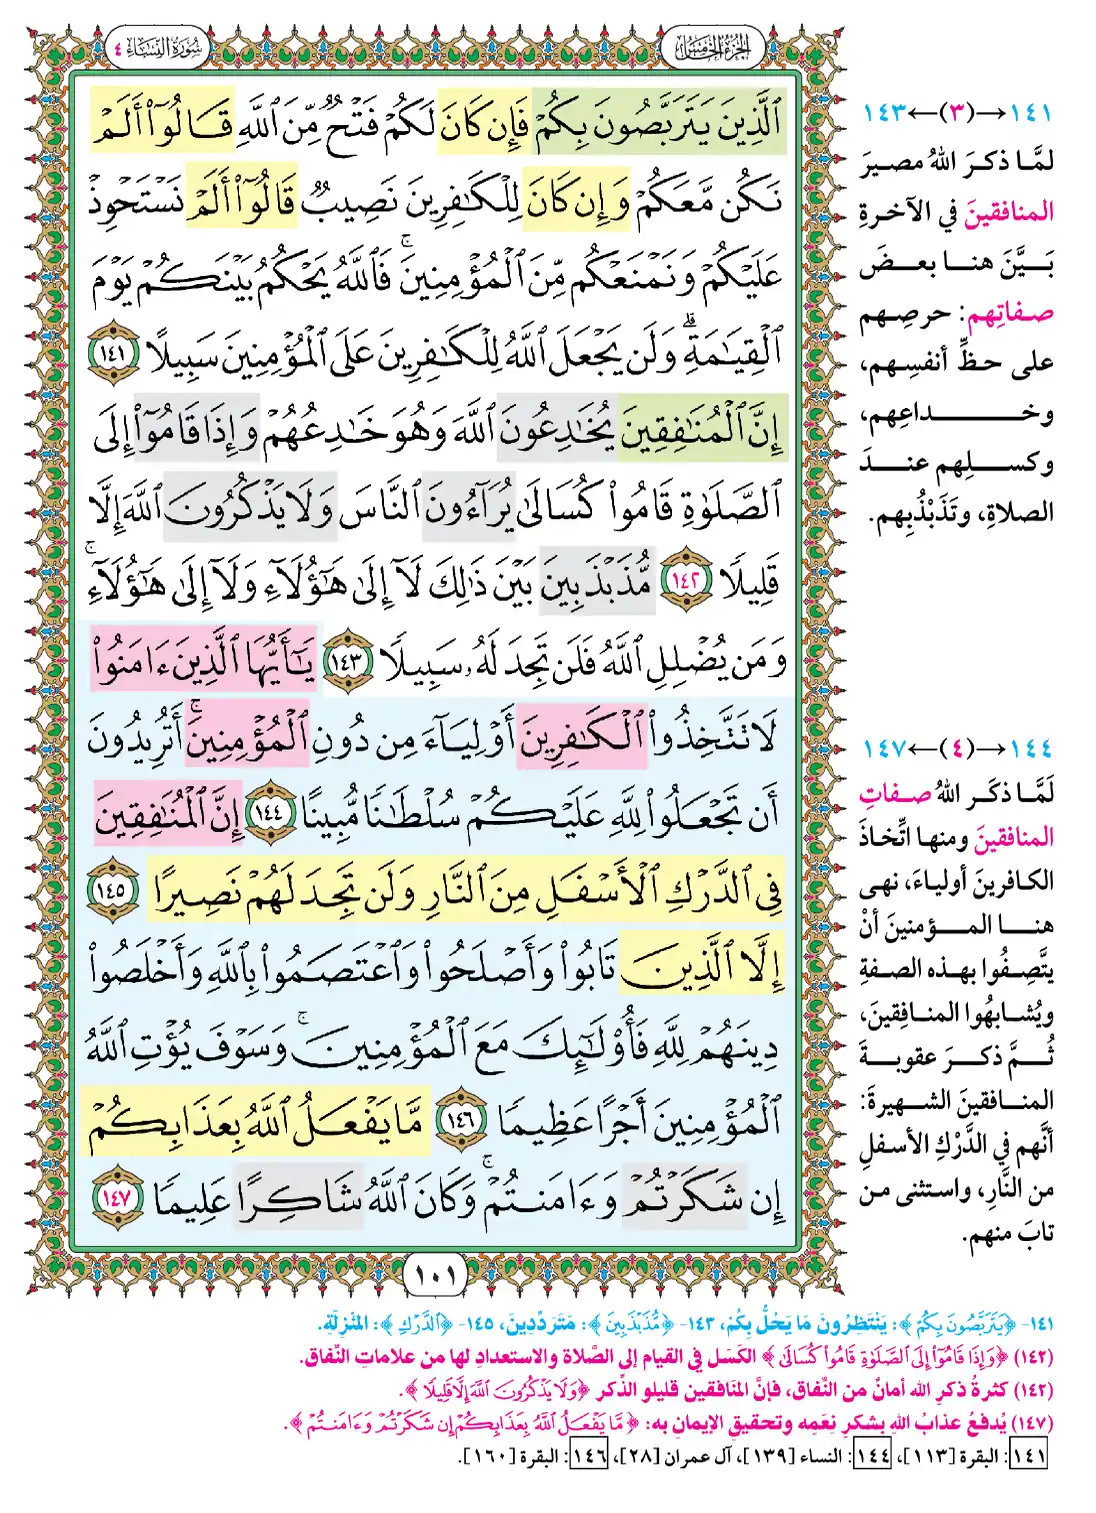 الجزء الخامس
سورة النساء ٤
ٱلَّذِينَ يَتَرَبَّصُونَ بِكُمۡ فَإِن كَانَ لَكُمۡ فَتۡحٞ مِّنَ ٱللَّهِ قَالُوٓاْ أَلَمۡ
نَكُن مَّعَكُمۡ وَإِن كَانَ لِلۡكَٰفِرِينَ نَصِيبٞ قَالُوٓاْ أَلَمۡ نَسۡتَحۡوِذۡ
عَلَيۡكُمۡ وَنَمۡنَعۡكُم مِّنَ ٱلۡمُؤۡمِنِينَۚ فَٱللَّهُ يَحۡكُمُ بَيۡنَكُمۡ يَوۡمَ
ٱلۡقِيَٰمَةِۗ وَلَن يَجۡعَلَ ٱللَّهُ لِلۡكَٰفِرِينَ عَلَى ٱلۡمُؤۡمِنِينَ سَبِيلًا ١٤١
إِنَّ ٱلۡمُنَٰفِقِينَ يُخَٰدِعُونَ ٱللَّهَ وَهُوَ خَٰدِعُهُمۡ وَإِذَا قَامُوٓاْ إِلَى
ٱلصَّلَوٰةِ قَامُواْ كُسَالَىٰ يُرَآءُونَ ٱلنَّاسَ وَلَا يَذۡكُرُونَ ٱللَّهَ إِلَّا
قَلِيلٗا ١٤٢ مُّذَبۡذَبِينَ بَيۡنَ ذَٰلِكَ لَآ إِلَىٰ هَٰٓؤُلَآءِ وَلَآ إِلَىٰ هَٰٓؤُلَآءِۚ
وَمَن يُضۡلِلِ ٱللَّهُ فَلَن تَجِدَ لَهُۥ سَبِيلٗا ١٤٣ يَٰٓأَيُّهَا ٱلَّذِينَ ءَامَنُواْ
لَا تَتَّخِذُواْ ٱلۡكَٰفِرِينَ أَوۡلِيَآءَ مِن دُونِ ٱلۡمُؤۡمِنِينَۚ أَتُرِيدُونَ
أَن تَجۡعَلُواْ لِلَّهِ عَلَيۡكُمۡ سُلۡطَٰنٗا مُّبِينًا ١٤٤ إِنَّ ٱلۡمُنَٰفِقِينَ
فِي ٱلدَّرۡكِ ٱلۡأَسۡفَلِ مِنَ ٱلنَّارِ وَلَن تَجِدَ لَهُمۡ نَصِيرًا ١٤٥
إِلَّا ٱلَّذِينَ تَابُواْ وَأَصۡلَحُواْ وَٱعۡتَصَمُواْ بِٱللَّهِ وَأَخۡلَصُواْ
دِينَهُمۡ لِلَّهِ فَأُوْلَٰٓئِكَ مَعَ ٱلۡمُؤۡمِنِينَۖ وَسَوۡفَ يُؤۡتِ ٱللَّهُ
ٱلۡمُؤۡمِنِينَ أَجۡرًا عَظِيمٗا ١٤٦ مَّا يَفۡعَلُ ٱللَّهُ بِعَذَابِكُمۡ
إِن شَكَرۡتُمۡ وَءَامَنتُمۡۚ وَكَانَ ٱللَّهُ شَاكِرًا عَلِيمٗا ١٤٧
١٠١
١٤١→(٣)←١٤٣
لمَّا ذكرَ اللهُ مصيرَ
المنافقينَ في الآخرةِ
بَيَّنَ هنا بعضَ
صفاتِهم: حرصِهم
على حظِّ أنفسِهم،
وخداعِهم،
وكسلِهم عندَ
الصلاةِ، وتَذَبْذُبِهم.
١٤٤→(٤)←١٤٧
لَمَّا ذكَر اللهُ صفاتِ
المنافقينَ ومنها اتِّخاذَ
الكافرينَ أولياءَ، نهى
هنا المؤمنينَ أنْ
يتَّصِفُوا بهذه الصفةِ
ويُشابهُوا المنافِقينَ،
ثُمَّ ذكرَ عقوبةَ
المنافقينَ الشهيرةَ:
أنَّهم في الدَّرْكِ الأسفلِ
من النَّارِ، واستثنى من
تابَ منهم.
١٤١- ﴿يَتَرَبَّصُونَ بِكُمْ﴾: يَنْتَظِرُونَ مَا يَحُلُّ بِكُمْ، ١٤٣- ﴿مُّذَبْذَبِينَ﴾: مُتَرَدِّدِينَ، ١٤٥- ﴿ٱلدَّرْكِ﴾: المَنْزِلَةِ.
(١٤٢) ﴿وَإِذَا قَامُوٓاْ إِلَى ٱلصَّلَوٰةِ قَامُواْ كُسَالَىٰ﴾ الكَسَل في القيام إلى الصَّلاة والاستعدادِ لها من علاماتِ النِّفاق.
(١٤٢) كثرةُ ذكرِ الله أمانٌ من النِّفاق، فإنَّ المنَافقين قليلو الذِّكر ﴿وَلَا يَذْكُرُونَ ٱللَّهَ إِلَّا قَلِيلًا﴾.
(١٤٧) يُدفعُ عذابُ اللهِ بشكرِ نِعَمِه وتحقيقِ الإيمانِ به: ﴿مَّا يَفْعَلُ ٱللَّهُ بِعَذَابِكُمْ إِن شَكَرْتُمْ وَءَامَنتُمْ﴾.
١٤١: البقرة [١١٣]، ١٤٤: النساء [١٣٩]، آل عمران [٢٨]، ١٤٦: البقرة [١٦٠].